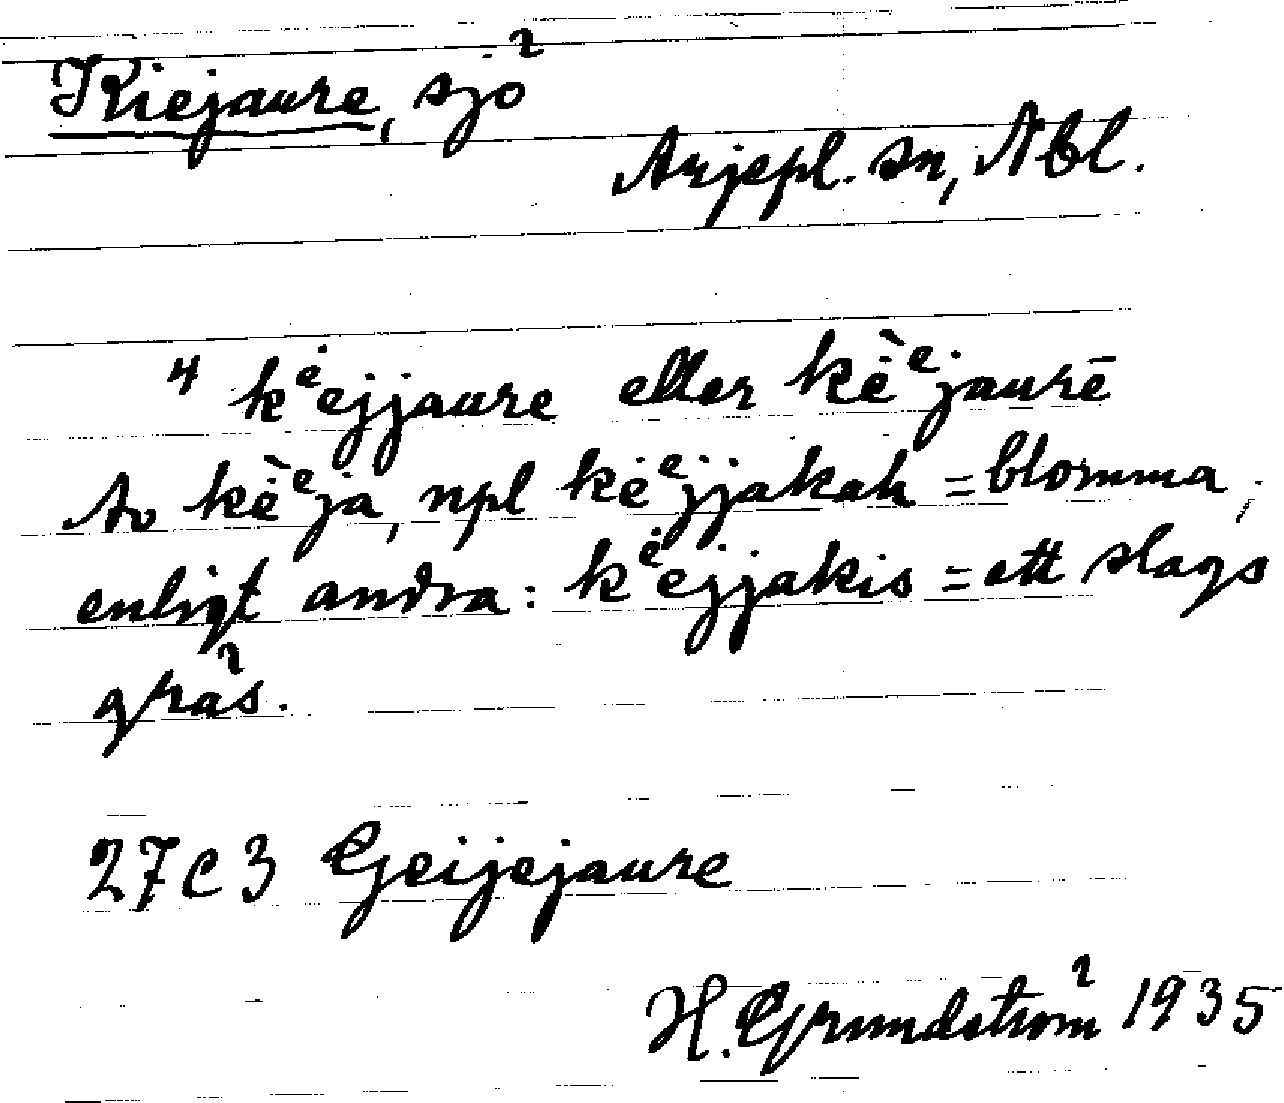 Kiejaure, sjö
Arjepl. sn, Nbl.
4 kėejjaure eller kė̀ejaurē
Av kė̀eja, npl kėejjakah = blomma,
enligt andra: kėejjakis = ett slags
gräs.
27C3 Geijejaure
H. Grundström 1935